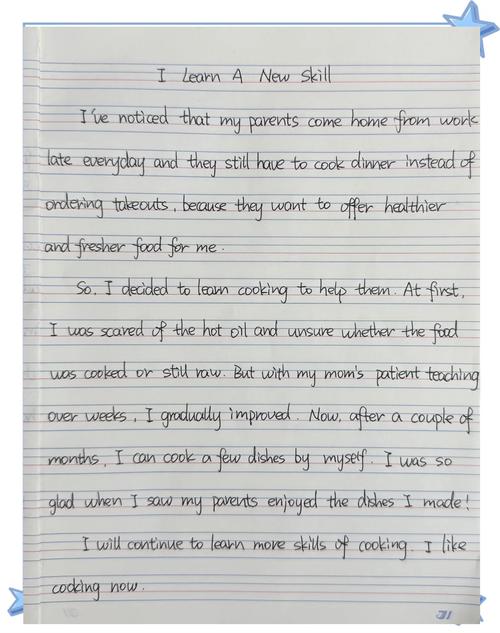 I Learn A New Skill
I've noticed that my parents come home from work
late everyday and they still have to cook dinner instead of
ordering takeouts, because they want to offer healthier
and fresher food for me.
So, I decided to learn cooking to help them. At first,
I was scared of the hot oil and unsure whether the food
was cooked or still raw. But with my mom's patient teaching
over weeks, I gradually improved. Now, after a couple of
months, I can cook a few dishes by myself. I was so
glad when I saw my parents enjoyed the dishes I made!
I will continue to learn more skills of cooking. I like
cooking now.